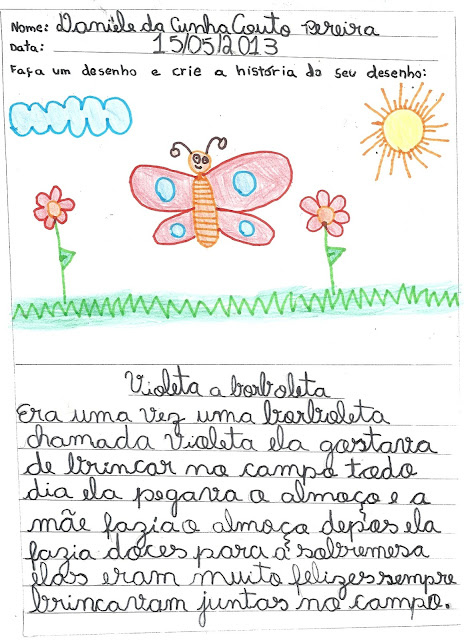 Nome: Daniele da Cunha Couto Pereira
Data: 15/05/2013
Faça um desenho e crie a história do seu desenho:
Violeta a borboleta
Era uma vez uma borboleta
chamada Violeta ela gostava
de brincar no campo todo
dia ela pegava o almoço e a
mãe fazia o almoço depois ela
fazia doces para a sobremesa
elas eram muito felizes sempre
brincavam juntas no campo.